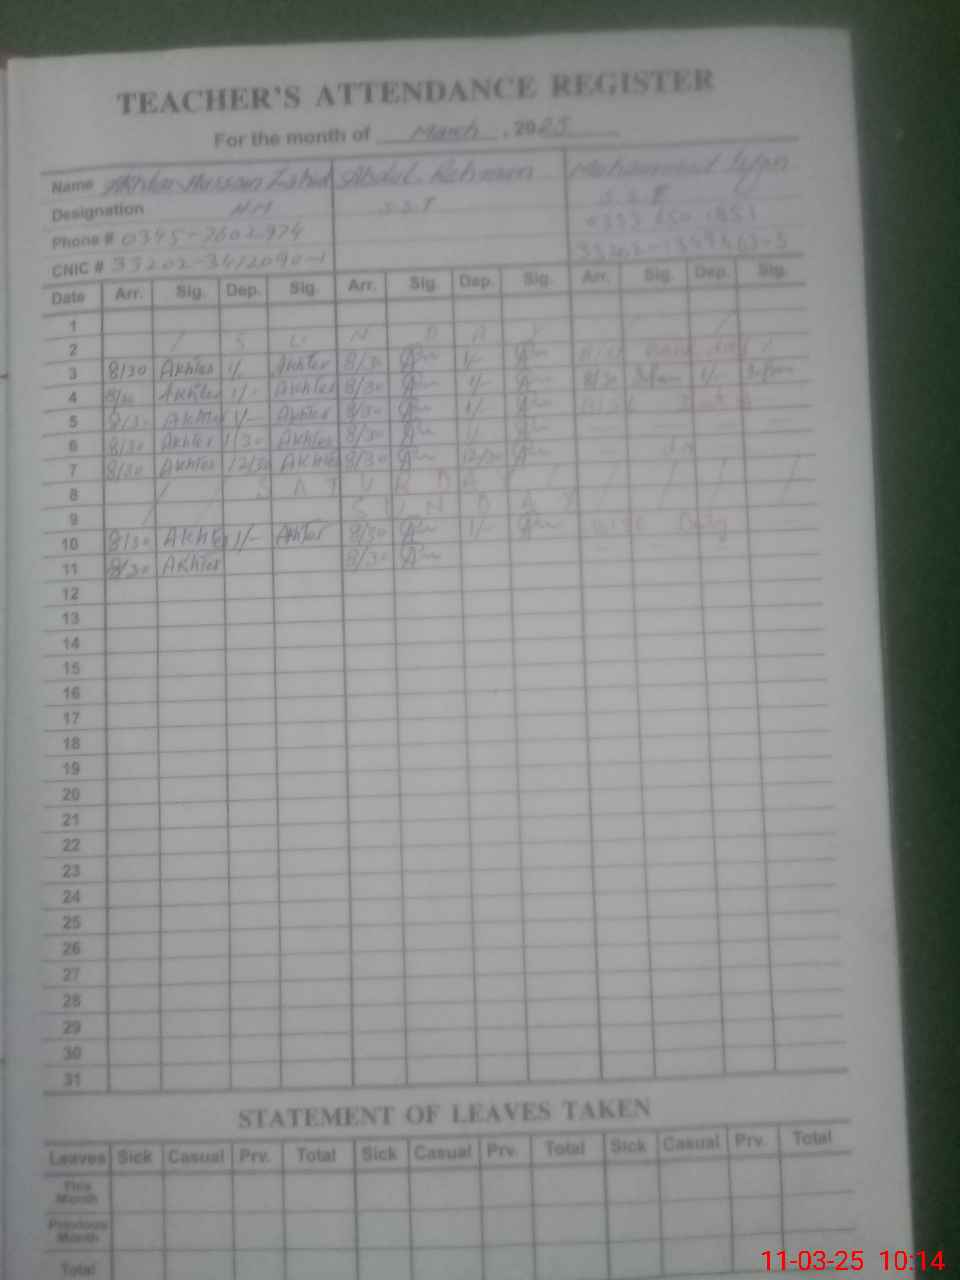 TEACHER'S ATTENDANCE REGISTER
For the month of March, 2025
Name Akhtar Hussain Zahid Abdul Rehman Muhammad Irfan
Designation H.M S.S.T S.S.E
Phone # 0345-7602974
CNIC #
Date Arr. Sig. Dep. Sig. Arr. Sig. Dep. Sig. Arr. Sig. Dep. Sig.
1
2 / S U N D A Y /
3 8/30 Akhter 1/- Akhter 8/30 1/-
4 8/30 Akhter 1/- Akhter 8/30 1/- 8/30 Irfan 1/- Irfan
5 8/30 Akhter 1/- Akhter 8/30 1/-
6 8/30 Akhter 1/30 Akhter 8/30
7 8/30 Akhter 12/30 Akhter 8/30 12/30
8 / / S A T U R D A Y / / / / /
9 / / S U N D A Y / / / /
10 8/30 Akhter 1/- Akhter 8/30 1/- Duty
11 8/30 Akhter 8/30
12
13
14
15
16
17
18
19
20
21
22
23
24
25
26
27
28
29
30
31
STATEMENT OF LEAVES TAKEN
Leaves Sick Casual Prv. Total Sick Casual Prv. Total Sick Casual Prv. Total
This Month
Previous Month
Total
11-03-25 10:14